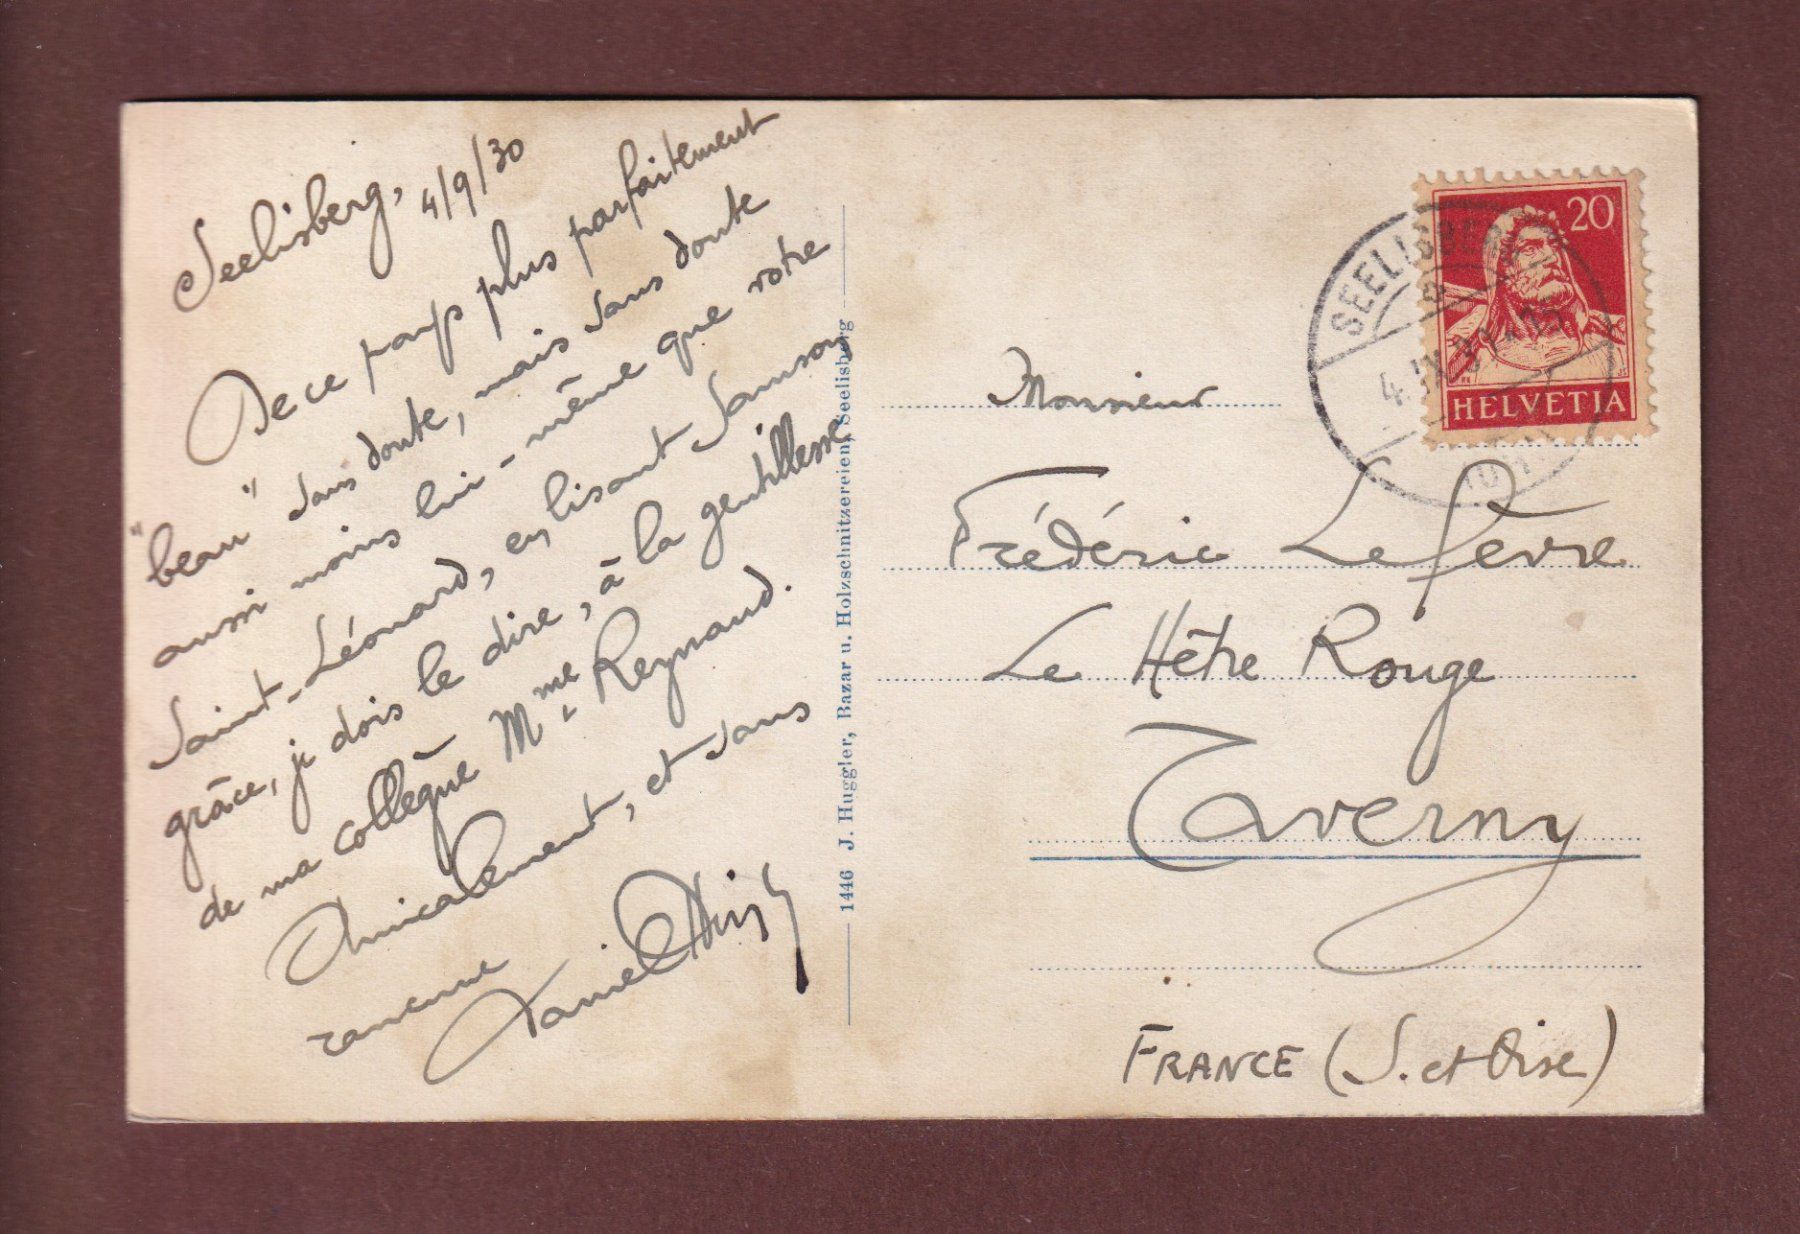 Seelisberg,
4/9/30
De ce pays plus parfaitement
"beau" sans doute, mais sans doute
aussi moins lui-même que votre
Saint-Léonard, en lisant Samson,
grâce, je dois le dire, à la gentillesse
de ma collègue Mme Reynaud.
Amicalement, et sans
rancune
Daniel
1446 J. Huggler, Bazar u. Holzschnitzereien, Seelisberg
20
HELVETIA
SEELISBERG
Monsieur
Frédéric Lefevre
Le Hêtre Rouge
Taverny
FRANCE (S. et Oise)